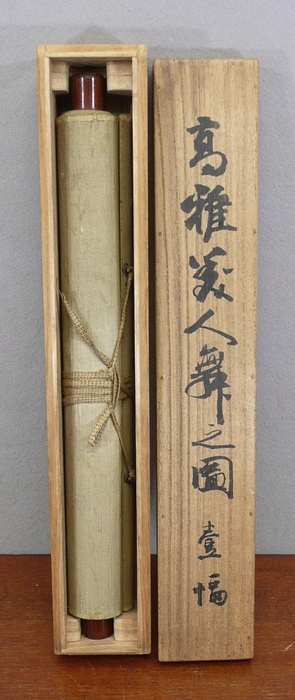 高雅美人舞之圖 壹幅